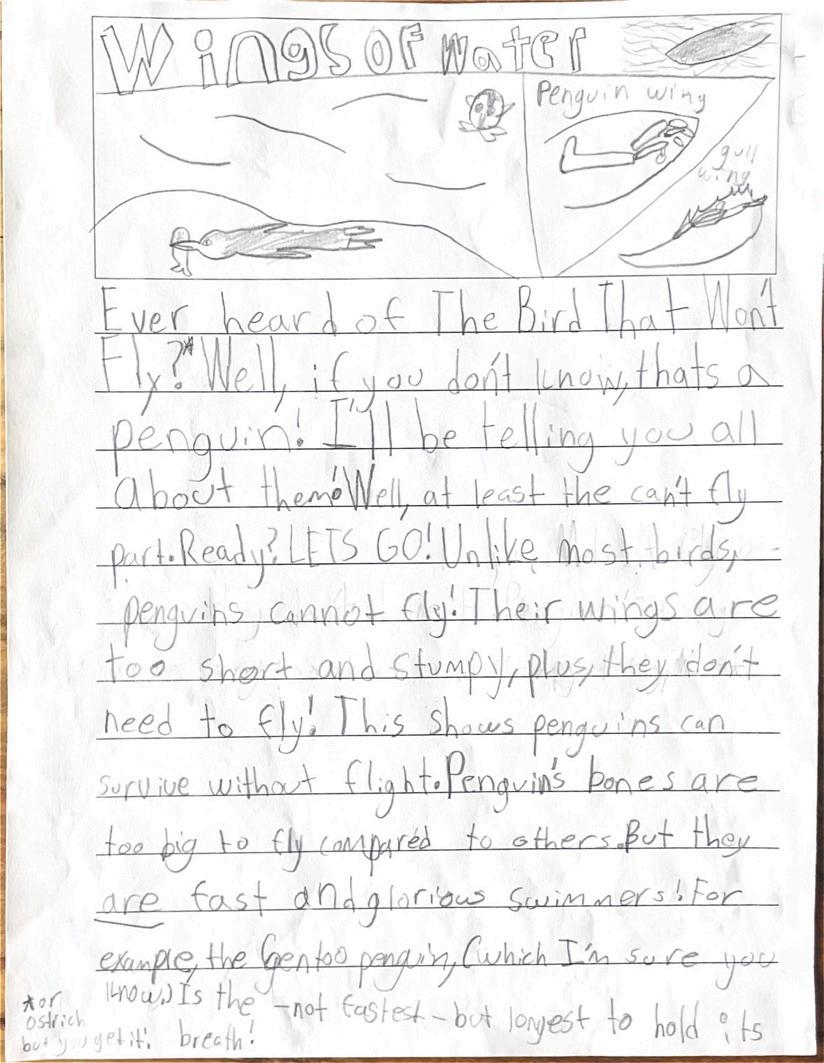 Wings of water
Penguin wing
gull
wing
Ever heard of The Bird That Won't
Fly?* Well, if you don't know, thats a
penguin! I'll be telling you all
about them! Well, at least the can't fly
part. Ready? LETS GO! Unlike most birds,
penguins cannot fly! Their wings are
too short and stumpy, plus, they don't
need to fly! This shows penguins can
survive without flight. Penguin's bones are
too big to fly compared to others. But they
are fast and glorious swimmers! For
example, the Gentoo penguin, (which I'm sure you
know.) Is the -not fastest- but longest to hold its
breath!
*or
Ostrich
but you get it!